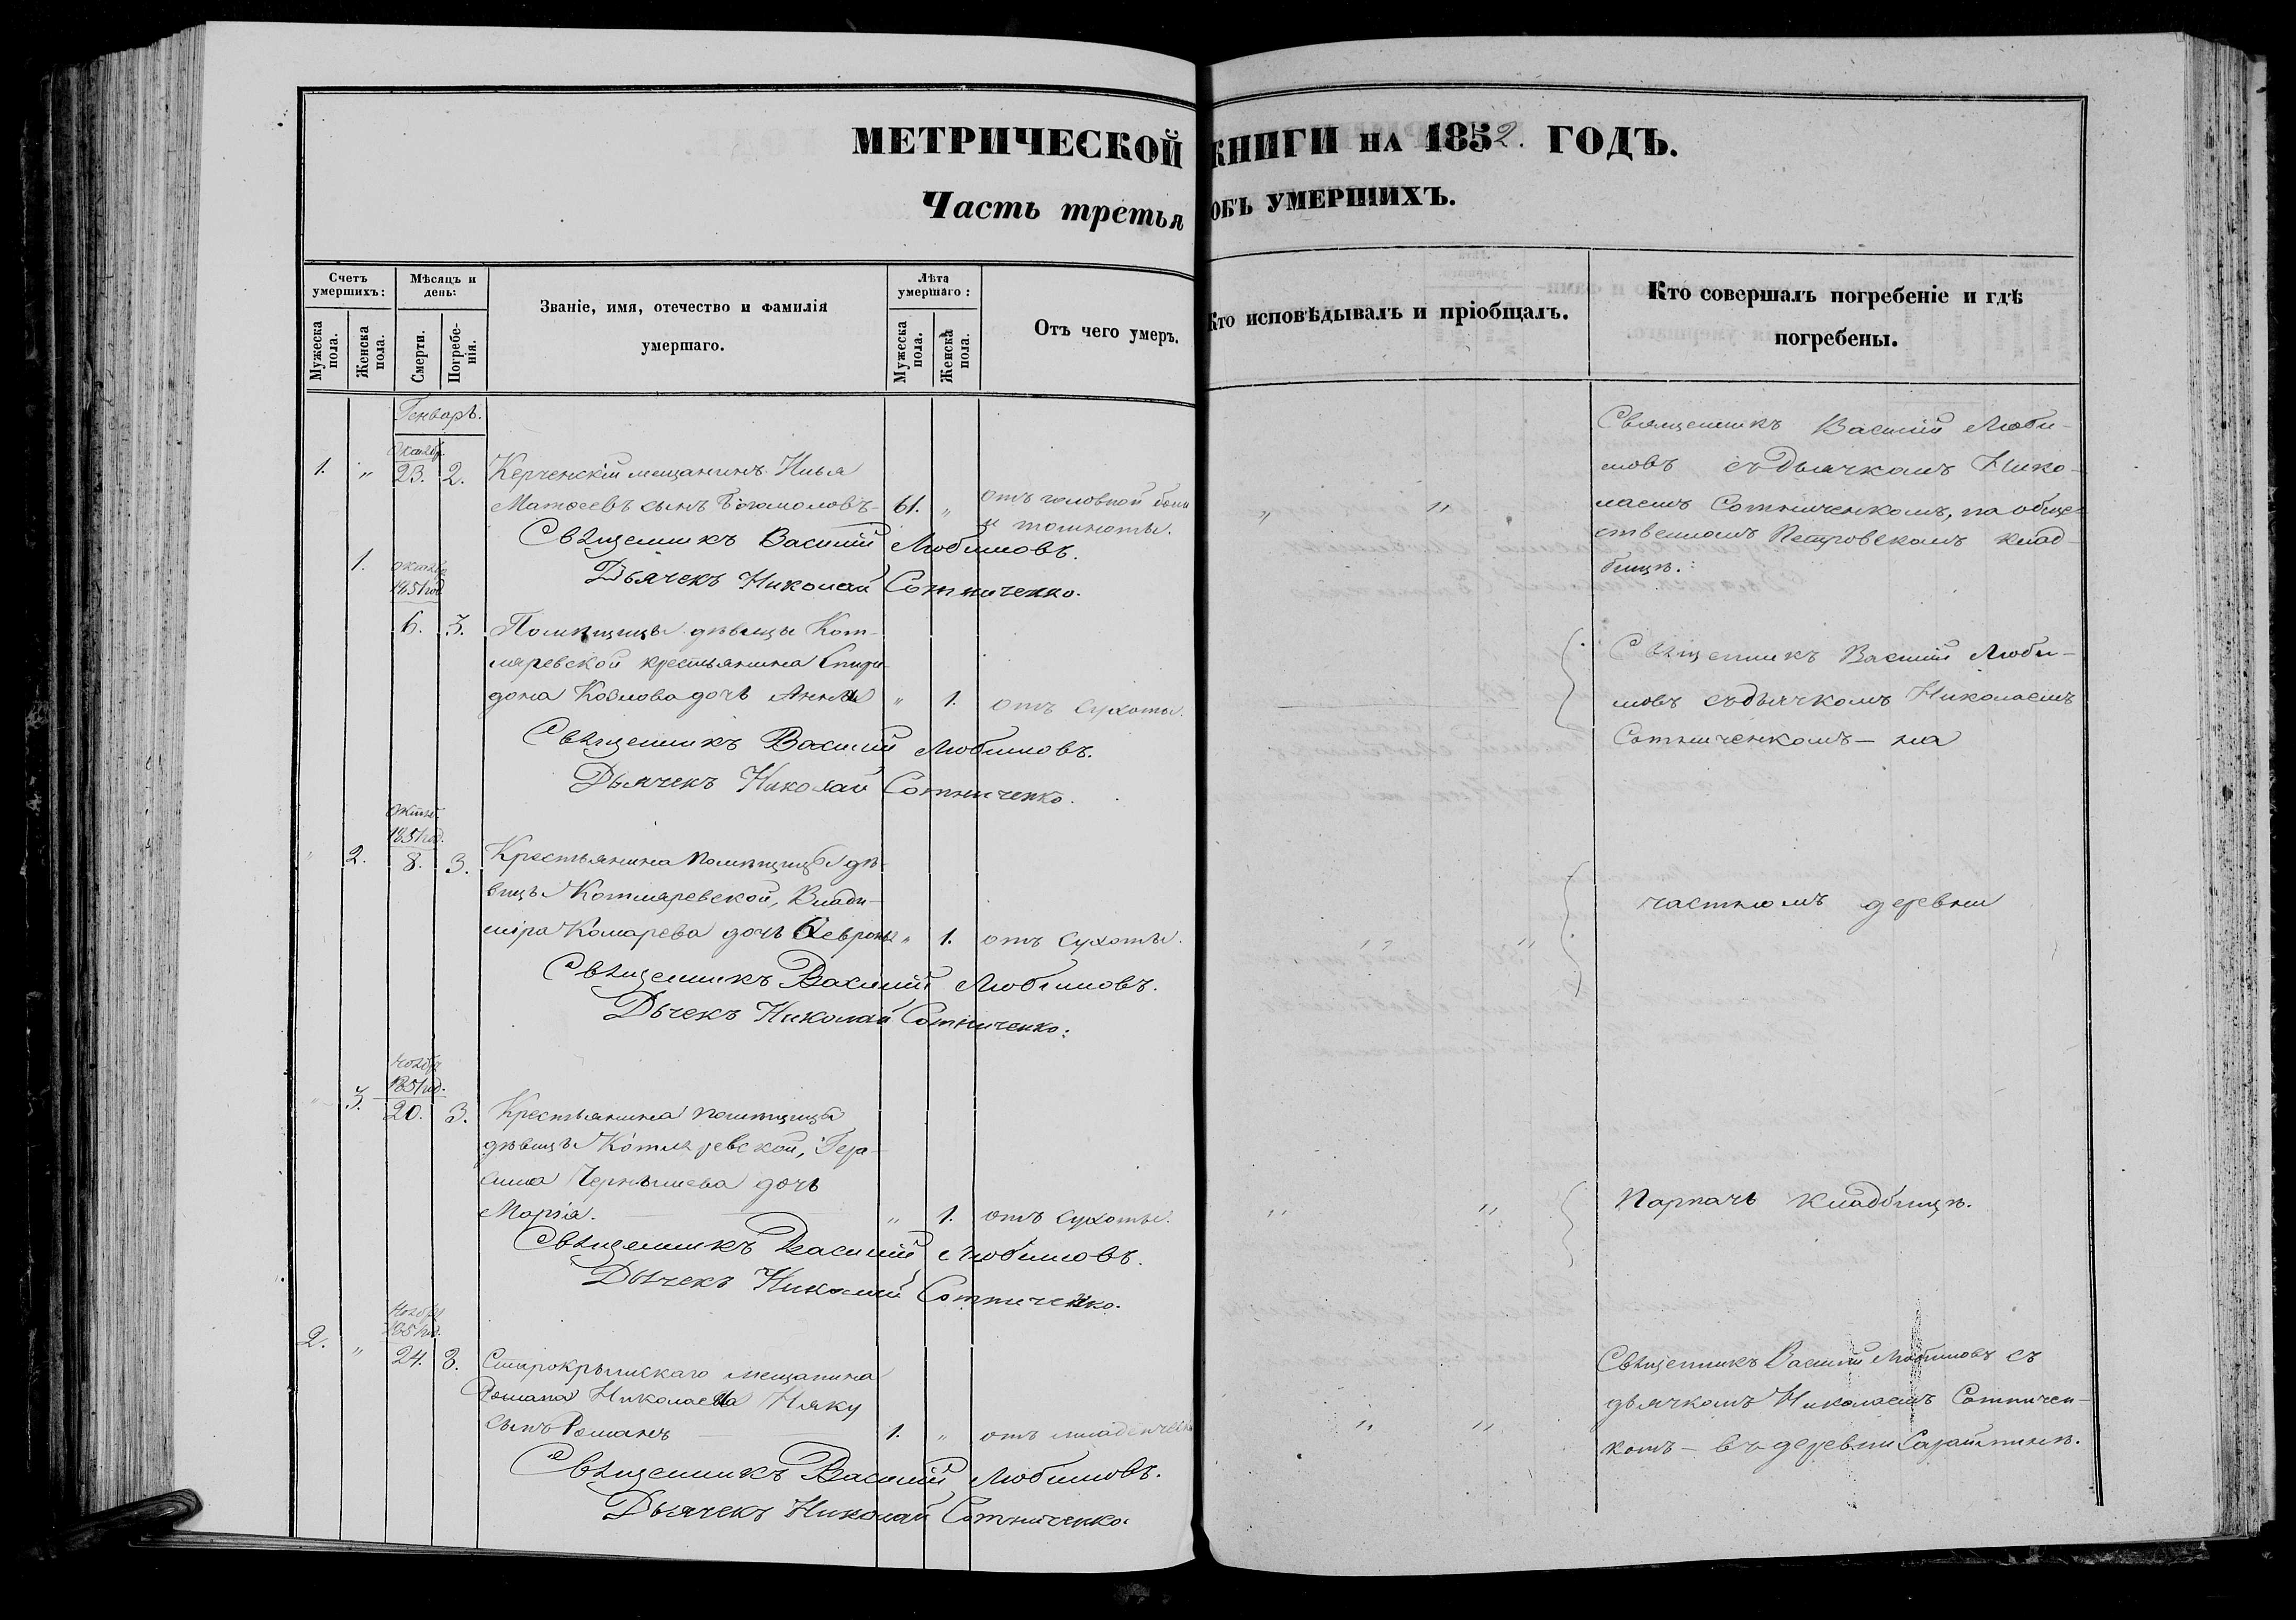 МЕТРИЧЕСКОЙ КНИГИ НА 1852. ГОДЪ.
Часть третья ОБЪ УМЕРШИХЪ.
Счетъ умершихъ:
Мужеска пола.
Женска пола.
Мѣсяцъ и день:
Смерти.
Погребенія.
Званіе, имя, отечество и фамилія
умершаго.
Лѣта умершаго:
Мужеска пола.
Женска пола.
Отъ чего умеръ.
Кто исповѣдывалъ и пріобщалъ.
Кто совершалъ погребеніе и гдѣ
погребены.
Генварь.
1. " 23. 2. Керченскій мещанинъ Илья
Матѳеевъ сынъ Богомоловъ 61. " отъ головной боли
и тошноты.
Священникъ Василій Любимовъ.
Дьячекъ Николай Сотниченко.
Священникъ Василій Люби-
мовъ съ дьячкомъ Нико-
лаемъ Сотниченкомъ, на обще-
ственномъ Петровскомъ клад-
бищѣ.
1. октябр
1851 год
6. 3. Помѣщицы дѣвицы Кот-
ляревской крестьянина Спири-
дона Козлова дочь Анна " 1. отъ сухоты.
Священникъ Василій Любимовъ.
Дьячекъ Николай Сотниченко.
Священникъ Василій Люби-
мовъ съ дьячкомъ Николаемъ
Сотниченкомъ – на
1851 год.
" 2. 8. 3. Крестьянина помѣщицы дѣ-
вицы Котляревской, Влади-
міра Комарева дочь Ѳевронья " 1. отъ сухоты.
Священникъ Василій Любимовъ.
Дьчекъ Николай Сотниченко:
частномъ деревни
Ноябр
1851 год.
" 3. 20. 3. Крестьянина помѣщицы
дѣвицы Котляревской, Гера-
сима Чернышева дочь
Марія. " 1. отъ сухоты.
Священникъ Василій Любимовъ.
Дьячекъ Николай Сотниченко.
Парпачь кладбищѣ.
Ноябр
1851 год.
2. " 24. 3. Старокрымскаго мещанина
Романа Николаева Няку
сынъ Романъ 1. " отъ младенческ
Священникъ Василій Любимовъ.
Дьячекъ Николай Сотниченко.
Священникъ Василій Любимовъ съ
дьячкомъ Николаемъ Сотничен-
комъ – въ деревни Сарайминѣ.